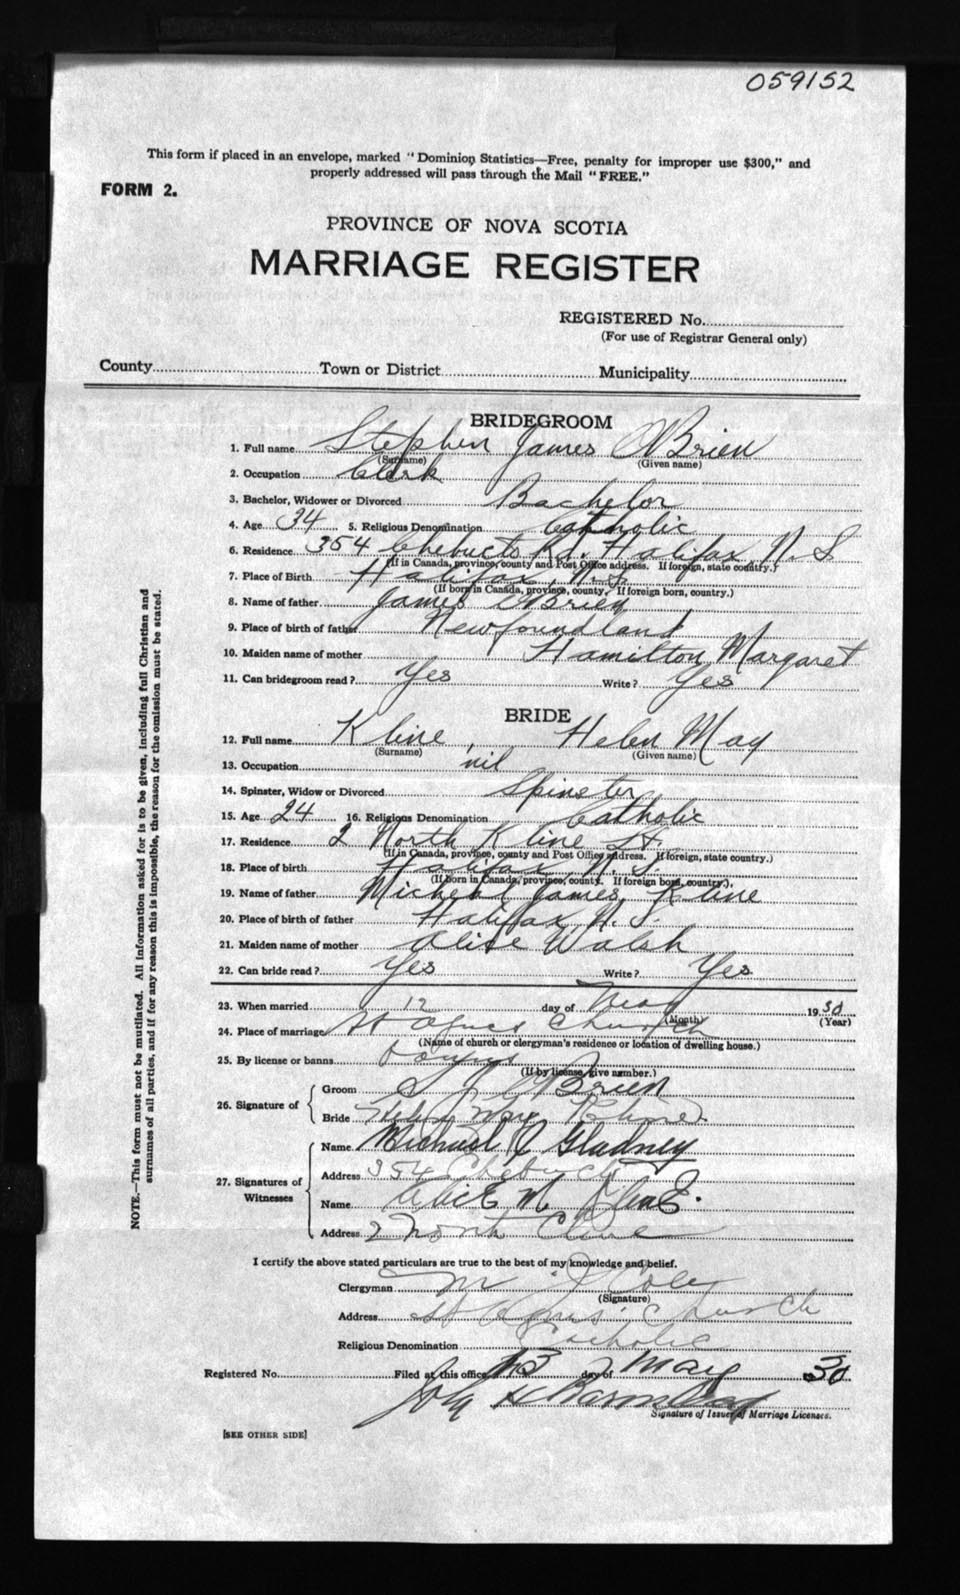 059152
This form if placed in an envelope, marked "Dominion Statistics—Free, penalty for improper use $300," and
properly addressed will pass through the Mail "FREE."
FORM 2.
PROVINCE OF NOVA SCOTIA
MARRIAGE REGISTER
REGISTERED No.
(For use of Registrar General only)
County Town or District Municipality
BRIDEGROOM
1. Full name Stephen James O'Brien
(Surname) (Given name)
2. Occupation Clerk
3. Bachelor, Widower or Divorced Bachelor
4. Age 34 5. Religious Denomination Catholic
6. Residence 354 Chebucto Rd. Halifax, N.S
(If in Canada, province, county and Post Office address. If foreign, state country.)
7. Place of Birth Halifax, N.S.
(If born in Canada, province, county. If foreign born, country.)
8. Name of father James O'Brien
9. Place of birth of father Newfoundland
10. Maiden name of mother Hamilton, Margaret
11. Can bridegroom read? Yes Write? Yes
BRIDE
12. Full name Kline, Helen May
(Surname) (Given name)
13. Occupation nil
14. Spinster, Widow or Divorced Spinster
15. Age 24 16. Religious Denomination Catholic
17. Residence 2 North Kline St.
(If in Canada, province, county and Post Office address. If foreign, state country.)
18. Place of birth Halifax, N.S.
(If born in Canada, province, county. If foreign born, country.)
19. Name of father James Kline
20. Place of birth of father Halifax, N.S.
21. Maiden name of mother Alice Walsh
22. Can bride read? Yes Write? Yes
23. When married 12 day of May 1930
(Month) (Year)
24. Place of marriage St Agnes Church
(Name of church or clergyman's residence or location of dwelling house.)
25. By license or banns
(If by license, give number.)
26. Signature of
Groom S J O'Brien
Bride Helen May Kline
27. Signatures of Witnesses
Name Michael J Gladney
Address 354 Chebucto
Name Alice M
Address 2 North Cline
I certify the above stated particulars are true to the best of my knowledge and belief.
Clergyman M J Cole
(Signature)
Address St Agnes' Church
Religious Denomination Catholic
Registered No. Filed at this office 13 day of May 30
John H
Signature of Issuer of Marriage Licenses.
[SEE OTHER SIDE]
NOTE.—This form must not be mutilated. All information asked for is to be given, including full Christian and
surnames of all parties, and if for any reason this is impossible, the reason for the omission must be stated.